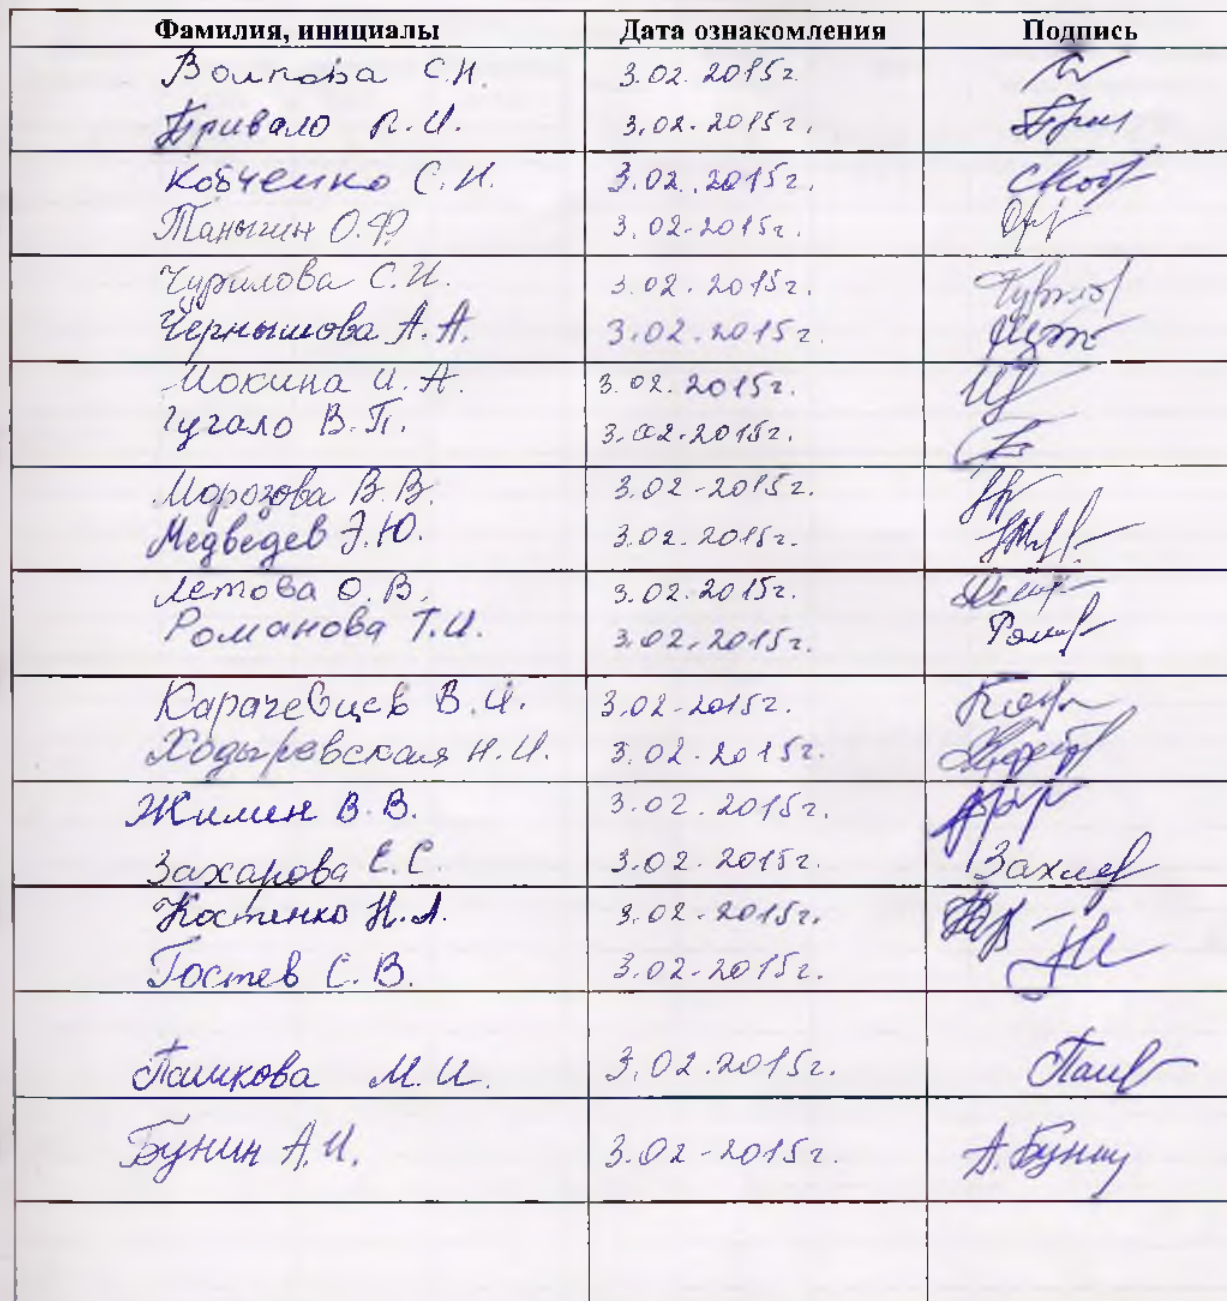 Фамилия, инициалы Дата ознакомления Подпись
Волкова С.Н. 3.02.2015г.
Привало Л.И. 3.02.2015г.
Кобченко С.Н. 3.02.2015г.
Таныгин О.Ф 3.02.2015г.
Чурилова С.И. 3.02.2015г.
Чернышова А.А. 3.02.2015г.
Мокина И.А. 3.02.2015г.
Гугало В.П. 3.02.2015г.
Морозова В.В. 3.02-2015г.
Медведев Э.Ю. 3.02.2015г.
Летова О.В. 3.02.2015г.
Романова Т.И. 3.02.2015г.
Карачевцев В.И. 3.02-2015г.
Ходыревская Н.И. 3.02.2015г.
Жилин В.В. 3.02.2015г.
Захарова Е.С. 3.02.2015г.
Костенко Н.А. 3.02.2015г.
Гостев С.В. 3.02.2015г.
Пашкова М.И. 3.02.2015г.
Бунин А.И. 3.02-2015г. А.Бунин